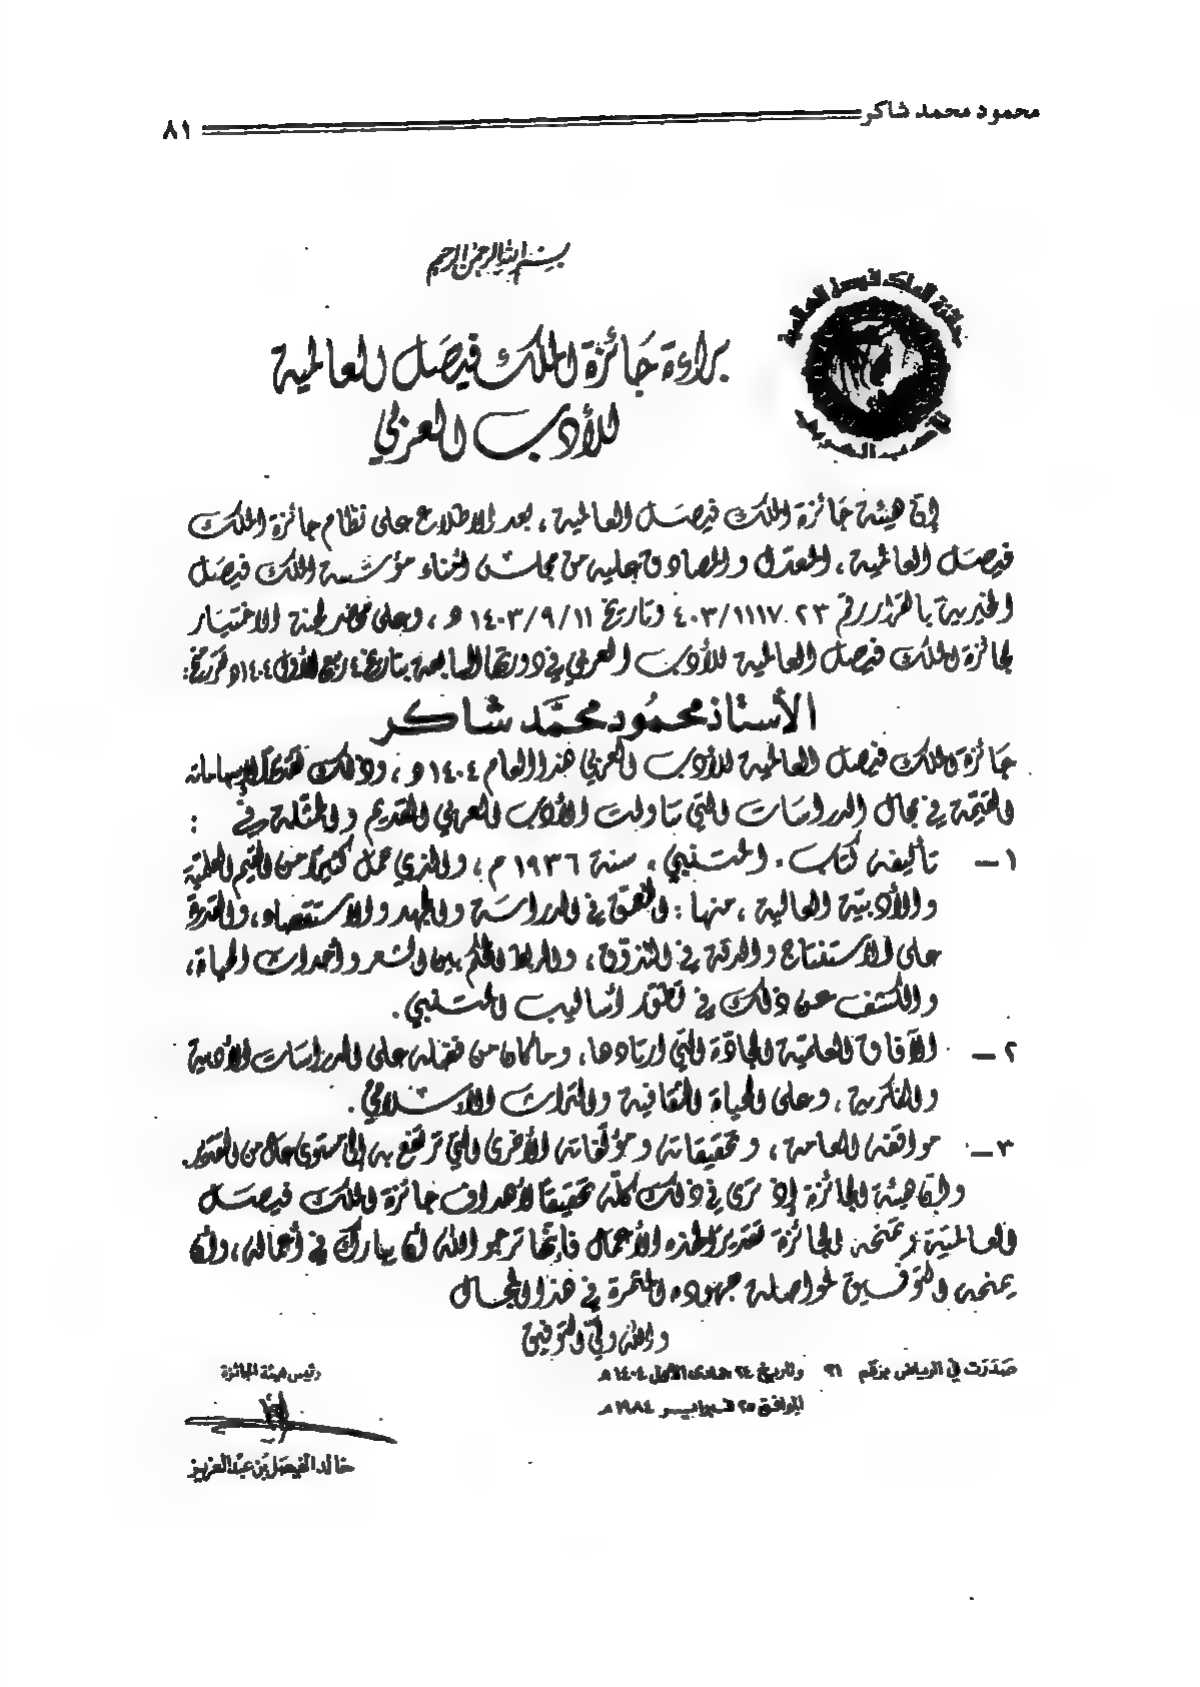 محمود محمد شاكر ٨١
بسم الله الرحمن الرحيم
جائزة الملك فيصل العالمية
للأدب العربي
براءة جائزة الملك فيصل العالمية
للأدب العربي
إن هيئة جائزة الملك فيصل العالمية ، بعد الاطلاع على نظام جائزة الملك
فيصل العالمية ، المعدل والمصادق عليه من مجلس أمناء مؤسسة الملك فيصل
الخيرية بالقرار رقم ٤٠٣/١١١٧٠٢٣ وتاريخ ١٤٠٣/٩/١١ هـ ، وعلى محضر لجنة الاختيار
لجائزة الملك فيصل العالمية للأدب العربي في دورتها السابعة بتاريخ ٤ ربيع الأول ١٤٠٤هـ تقرر منح :
الأستاذ محمود محمد شاكر
جائزة الملك فيصل العالمية للأدب العربي هذا العام ١٤٠٤ هـ ، وذلك تقديرًا لإسهاماته
القيّمة في مجال الدراسات التي تناولت الأدب العربي القديم والمتمثلة في :
١ – تأليفه كتاب . المتنبي . سنة ١٩٣٦ م ، والذي حمل كثيرًا من القيم العلمية
والأدبية العالية ، منها : التعمق في الدراسة والجهد والاستقصاء ، والقدرة
على الاستنتاج والدقة في التذوق ، والربط المحكم بين الشعر وأحداث الحياة ،
والكشف عن ذلك في تطور أساليب المتنبي .
٢ – الآفاق العلمية الجادّة التي ارتادها ، وما كان من فضله على الدراسات الأدبية
والفكرية ، وعلى الحياة الثقافية والتراث الإسلامي .
٣ – مواقفه العامة ، وتحقيقاته ومؤلفاته الأخرى التي ترتفع به إلى مستوى عال من التقدير .
وإن هيئة الجائزة إذ ترى في ذلك كله تحقيقًا لأهداف جائزة الملك فيصل
العالمية وتمنحه الجائزة تقديرًا لهذه الأعمال فإنها ترجو الله أن يبارك في أعماله ، وأن
يمنحه التوفيق لمواصلة جهوده المثمرة في هذا المجال
والله ولي التوفيق
صدرت في الرياض برقم ٢١ وتاريخ ٢٤ جمادى الأولى ١٤٠٤ هـ
الموافق ٢٥ فبراير ١٩٨٤ م
رئيس هيئة الجائزة
خالد الفيصل بن عبد العزيز